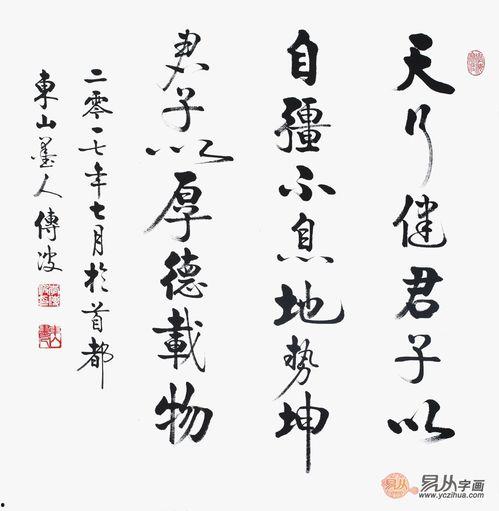 天行健君子以
自彊不息地势坤
君子以厚德載物
二零一七年七月於首都
東山墨人傅波
易从字画
www.yczihua.com